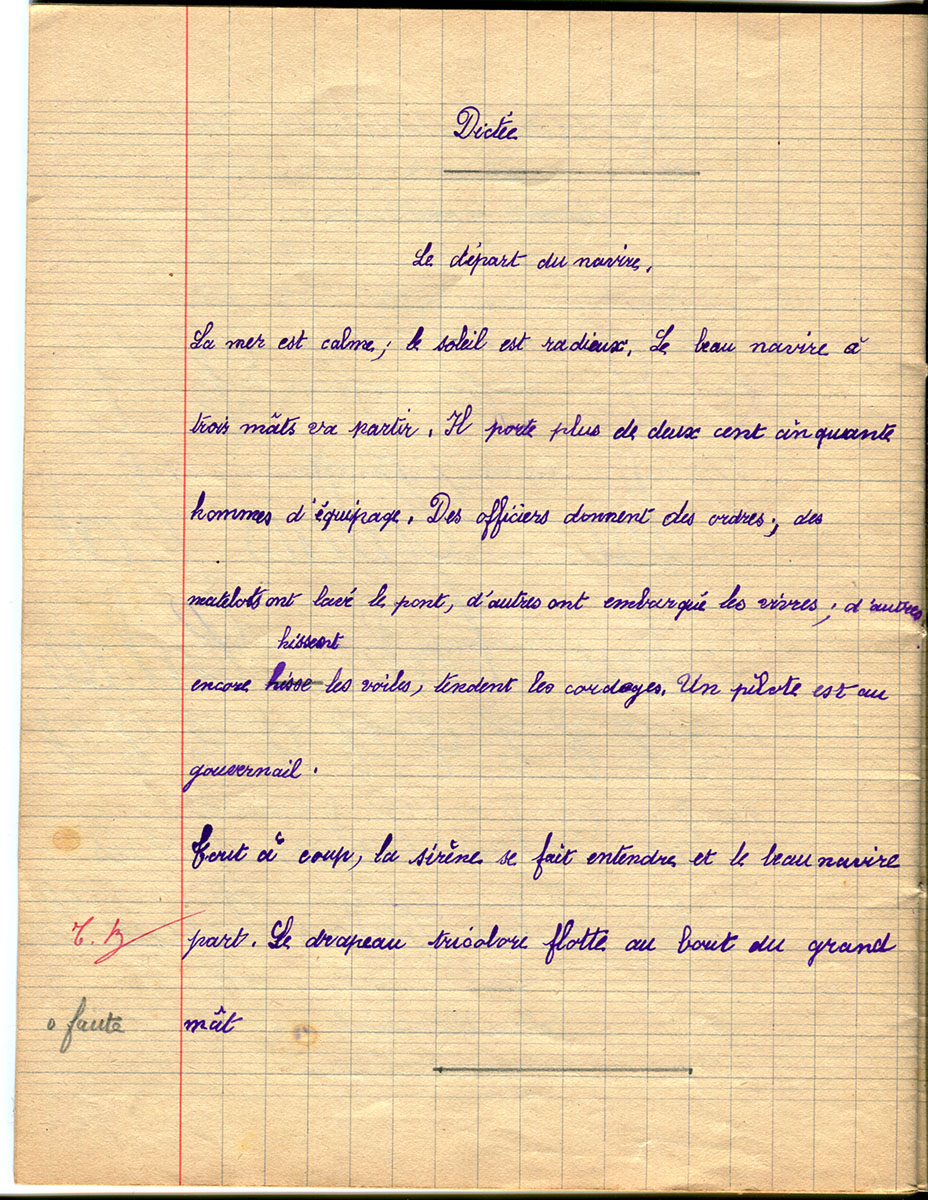 Dictée
Le départ du navire.
La mer est calme ; le soleil est radieux. Le beau navire à
trois mâts va partir. Il porte plus de deux cent cinquante
hommes d'équipage. Des officiers donnent des ordres ; des
matelots ont lavé le pont, d'autres ont embarqué les vivres ; d'autres
hissent
encore hisse les voiles, tendent les cordages. Un pilote est au
gouvernail.
Tout à coup, la sirène se fait entendre et le beau navire
T. B part. Le drapeau tricolore flotte au bout du grand
0 faute mât